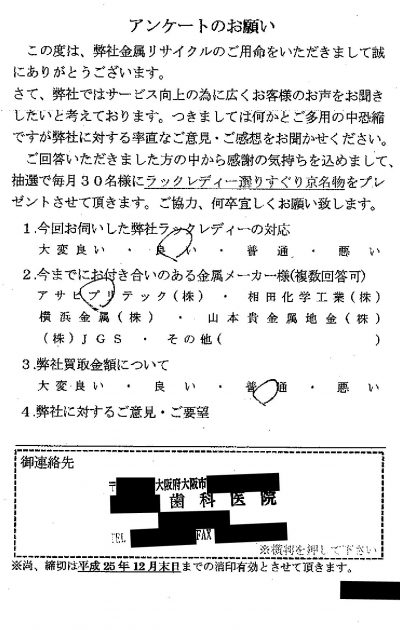 アンケートのお願い
この度は、弊社金属リサイクルのご用命をいただきまして誠
にありがとうございます。
さて、弊社ではサービス向上の為に広くお客様のお声をお聞き
したいと考えております。つきましては何かとご多用の中恐縮
ですが弊社に対する率直なご意見・ご感想をお聞かせください。
ご回答いただきました方の中から感謝の気持ちを込めまして、
抽選で毎月30名様にラックレディー選りすぐり京名物をプレ
ゼントさせて頂きます。ご協力、何卒宜しくお願い致します。
1.今回お伺いした弊社ラックレディーの対応
大変良い ・ 良い ・ 普通 ・ 悪い
2.今までにお付き合いのある金属メーカー様(複数回答可)
アサヒプリテック(株) ・ 相田化学工業(株)
横浜金属(株) ・ 山本貴金属地金(株)
(株)JGS ・ その他( )
3.弊社買取金額について
大変良い ・ 良い ・ 普通 ・ 悪い
4.弊社に対するご意見・ご要望
御連絡先
〒 大阪府大阪市
歯科医院
TEL FAX
※横判を押して下さい
※尚、締切は平成25年12月末日までの消印有効とさせて頂きます。